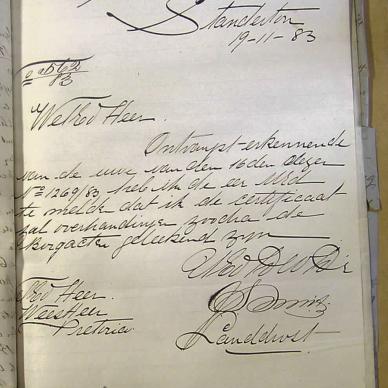 Standerton
19-11-83
WelEd Heer.
Ontvangst-erkennende
van de uwe van den 16den dezer
No 1269/83 heb ik de eer UEd
te melden dat ik de certificaat
zal overhandigen zoodra de
Borgacten geteekend zijn
UEd D W Dr
Landdrost
WEd Heer.
Weesheer
Pretoria